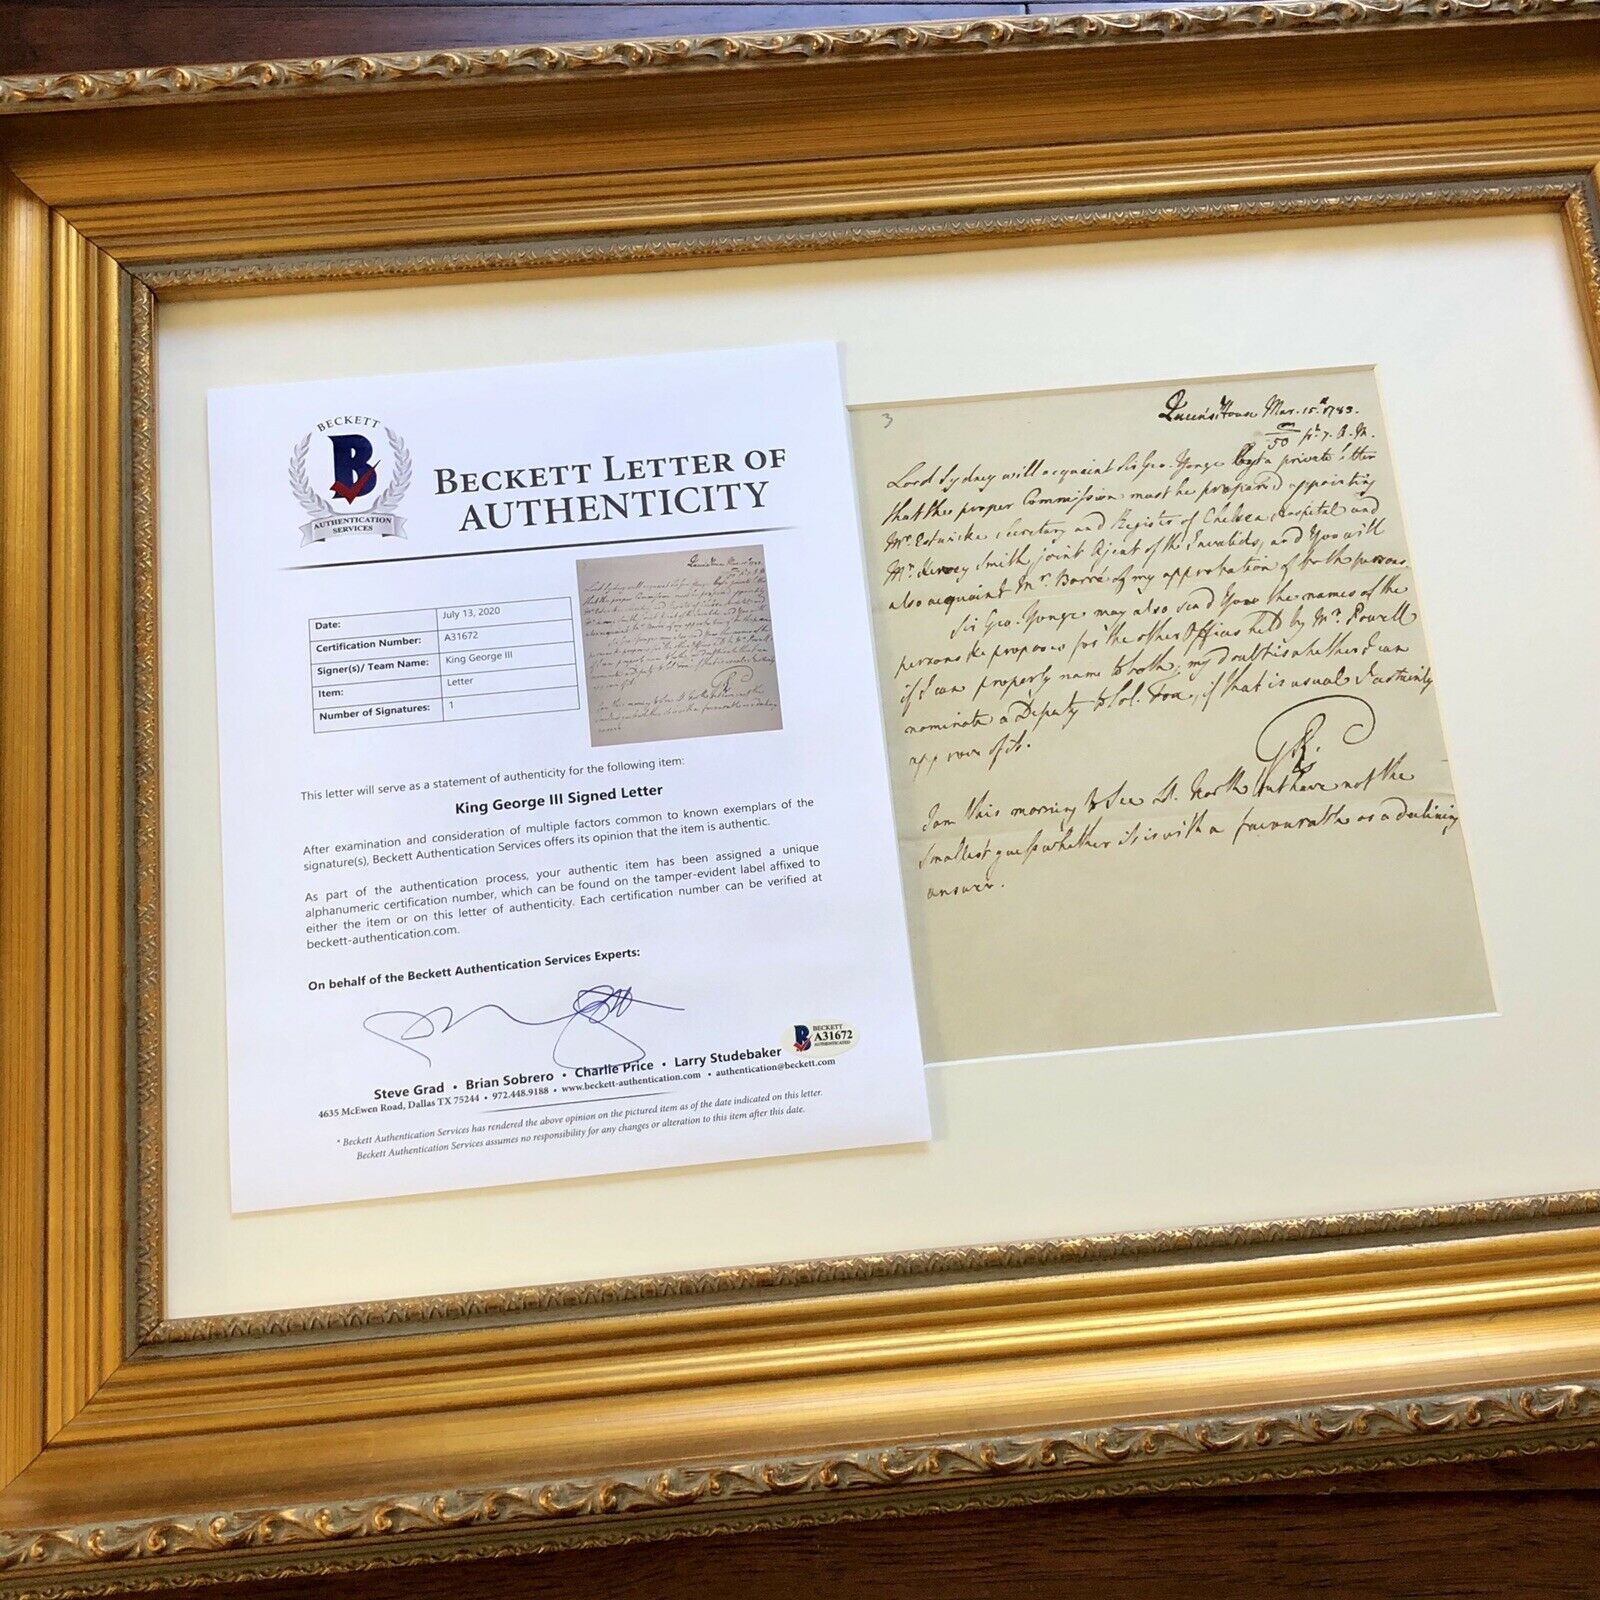 BECKETT
B
AUTHENTICATION
SERVICES
BECKETT LETTER OF
AUTHENTICITY
Date: July 13, 2020
Certification Number: A31672
Signer(s)/ Team Name: King George III
Item: Letter
Number of Signatures: 1
This letter will serve as a statement of authenticity for the following item:
King George III Signed Letter
After examination and consideration of multiple factors common to known exemplars of the
signature(s), Beckett Authentication Services offers its opinion that the item is authentic.
As part of the authentication process, your authentic item has been assigned a unique
alphanumeric certification number, which can be found on the tamper-evident label affixed to
either the item or on this letter of authenticity. Each certification number can be verified at
beckett-authentication.com.
On behalf of the Beckett Authentication Services Experts:
BECKETT
A31672
AUTHENTICATED
Steve Grad • Brian Sobrero • Charlie Price • Larry Studebaker
4635 McEwen Road, Dallas TX 75244 • 972.448.9188 • www.beckett-authentication.com • authentication@beckett.com
* Beckett Authentication Services has rendered the above opinion on the pictured item as of the date indicated on this letter.
Beckett Authentication Services assumes no responsibility for any changes or alteration to this item after this date.
3
Queen's House Mar. 15th 1783.
m/50 pt. 7. A.M.
Lord Sydney will acquaint Sir Geo. Yonge by a private letter
that the proper Commission must be prepared appointing
Mr. Estwicke Secretary and Register of Chelsea Hospital and
Mr. Hervey Smith joint Agent of the Invalids, and You will
also acquaint Mr. Barré of my approbation of both persons
Sir Geo. Yonge may also send You the names of the
persons he proposes for the other Offices held by Mr. Powell
if I can properly name to both, my doubt is whether I can
nominate a Deputy to Col. Fox, if that is usual I certainly
approve of it.
GR.
I am this morning to see Ld. North but have not the
smallest guess whether it is with a favourable or a declining
answer.